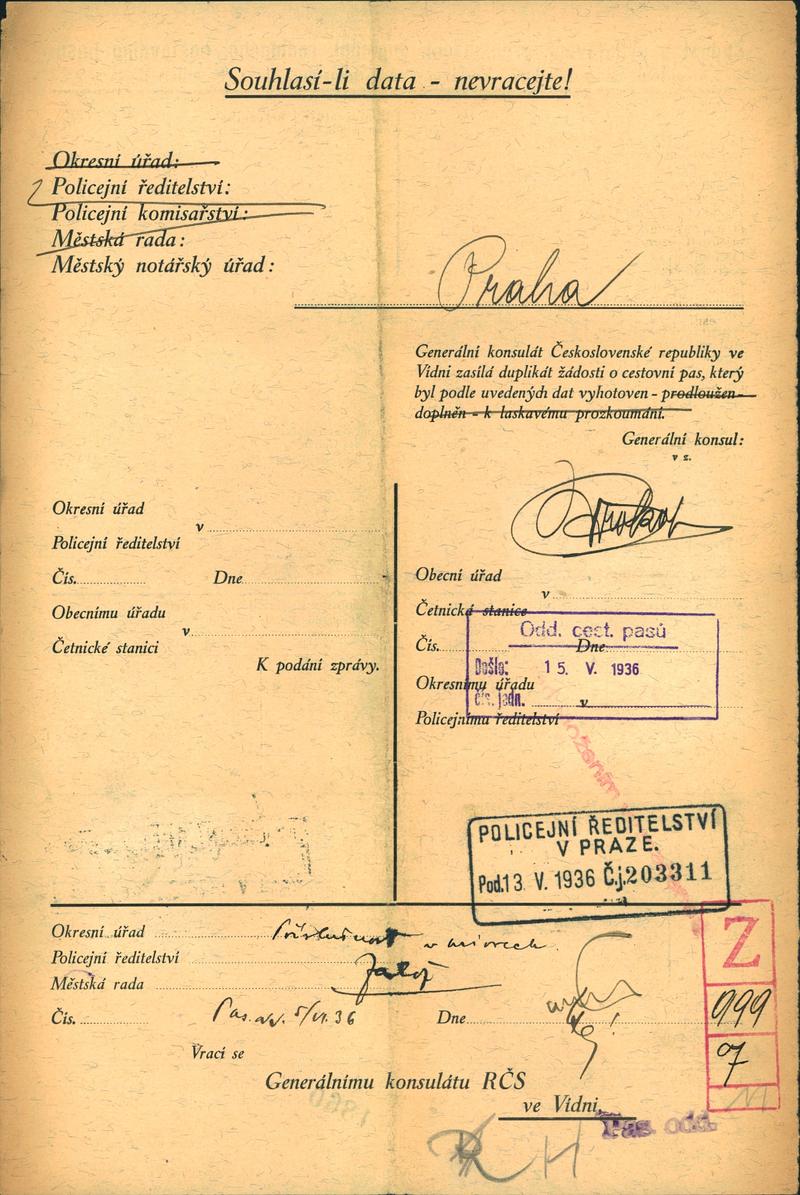 Souhlasí-li data - nevracejte!
Okresní úřad:
Policejní ředitelství:
Policejní komisařství:
Městská rada:
Městský notářský úřad:
Praha
Generální konsulát Československé republiky ve
Vídni zasílá duplikát žádosti o cestovní pas, který
byl podle uvedených dat vyhotoven - prodloužen -
doplněn - k laskavému prozkoumání.
Generální konsul:
v z.
Okresní úřad
v
Policejní ředitelství
Čís. Dne
Obecnímu úřadu
v
Četnické stanici
K podání zprávy.
Obecní úřad
v
Četnická stanice
Čís. Dne
Okresnímu úřadu
v
Policejnímu ředitelství
Odd. cest. pasů
Došlo: 15. V. 1936
čís. jedn.
POLICEJNÍ ŘEDITELSTVÍ
V PRAZE.
Pod. 13 V. 1936 Č.j. 203311
Okresní úřad Příslušnost v
Policejní ředitelství
Městská rada
Čís. Dne
Vrací se
Generálnímu konsulátu RČS
ve Vídni.
Pas. odd.
Z
999
7